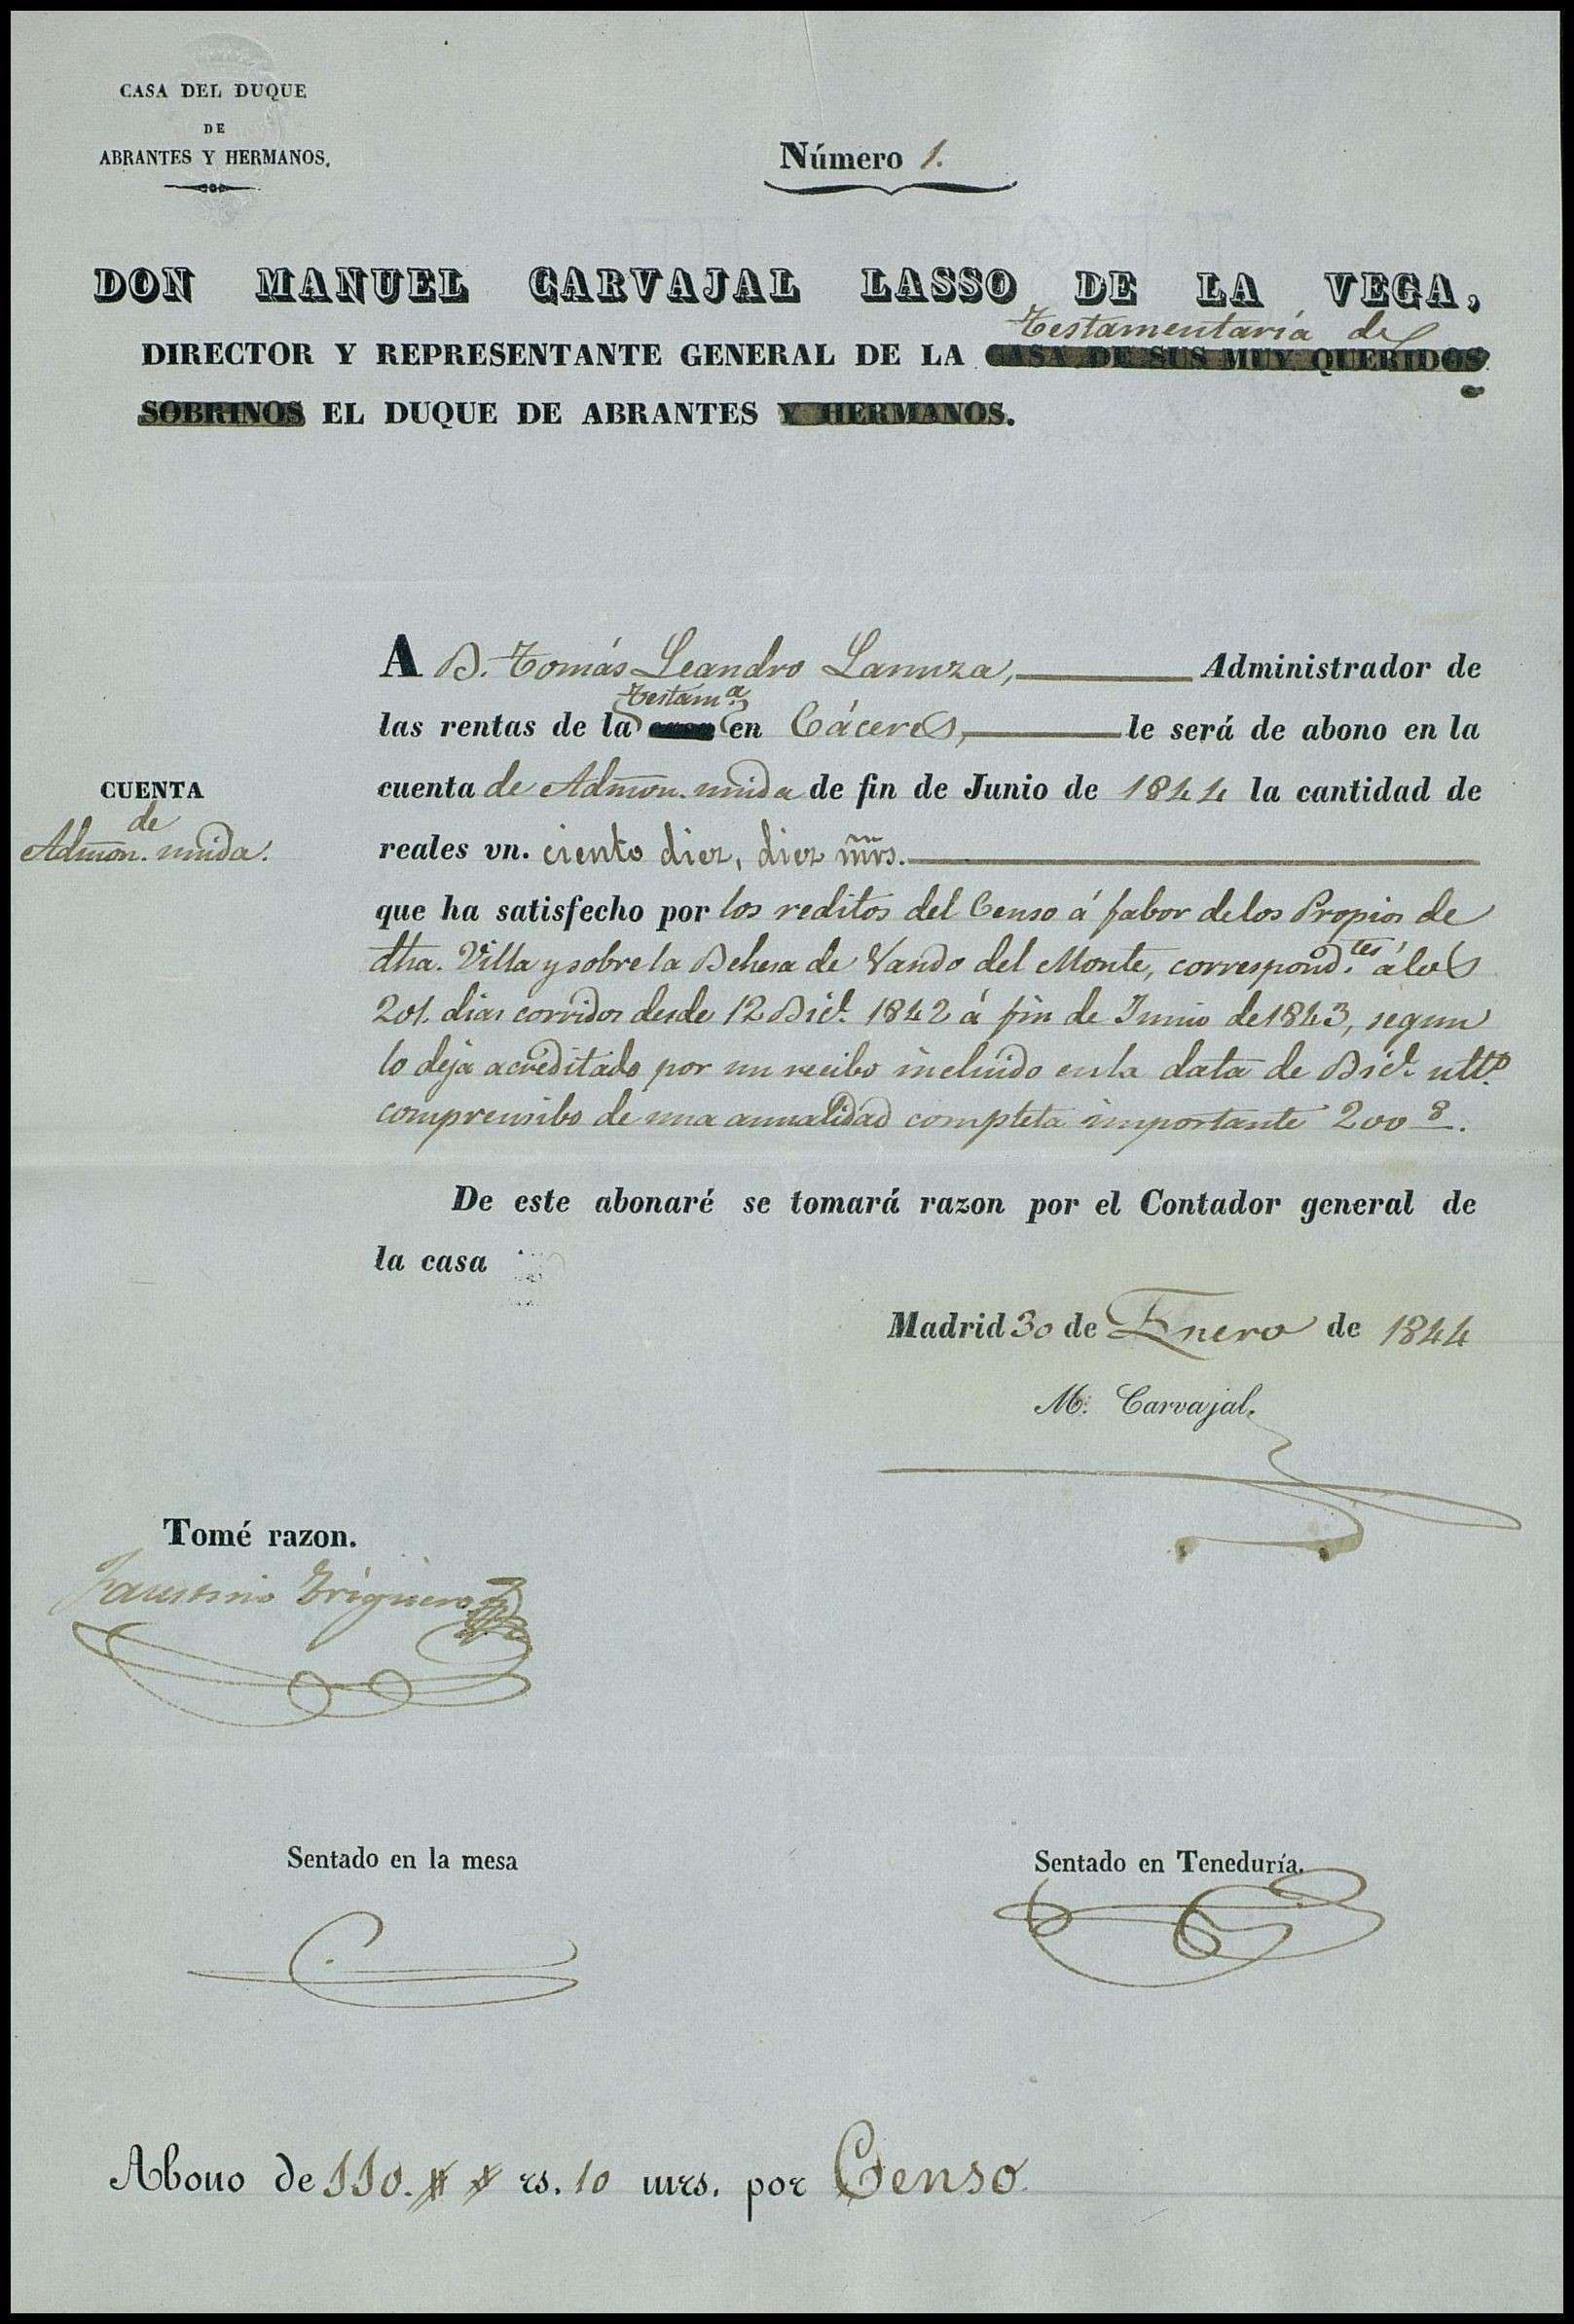 CASA DEL DUQUE
DE
ABRANTES Y HERMANOS.
Número 1.
DON MANUEL CARVAJAL LASSO DE LA VEGA,
Testamentaría de
DIRECTOR Y REPRESENTANTE GENERAL DE LA CASA DE SUS MUY QUERIDOS
SOBRINOS EL DUQUE DE ABRANTES Y HERMANOS.
A D. Tomás Leandro Lanuza, Administrador de
Testam.ª
las rentas de la en Cáceres, le será de abono en la
CUENTA
de
Admon. unida.
cuenta de Admon. unida de fin de Junio de 1844 la cantidad de
reales vn. ciento diez, diez mrs.
que ha satisfecho por los reditos del Censo á fabor de los Propios de
dha. Villa y sobre la Dehesa de Vando del Monte, correspond.tes á los
201. dias corridos desde 12 Dic.e 1842 á fin de Junio de 1843, segun
lo deja acreditado por un recibo incluido en la data de Dic.e ult.º
comprensibo de una anualidad completa importante 200 s.
De este abonaré se tomará razon por el Contador general de
la casa
Madrid 30 de Enero de 1844
M. Carvajal.
Tomé razon.
Faustino Triguero
Sentado en la mesa
Sentado en Teneduría.
Abono de 110. rs. 10 mrs. por Censo.